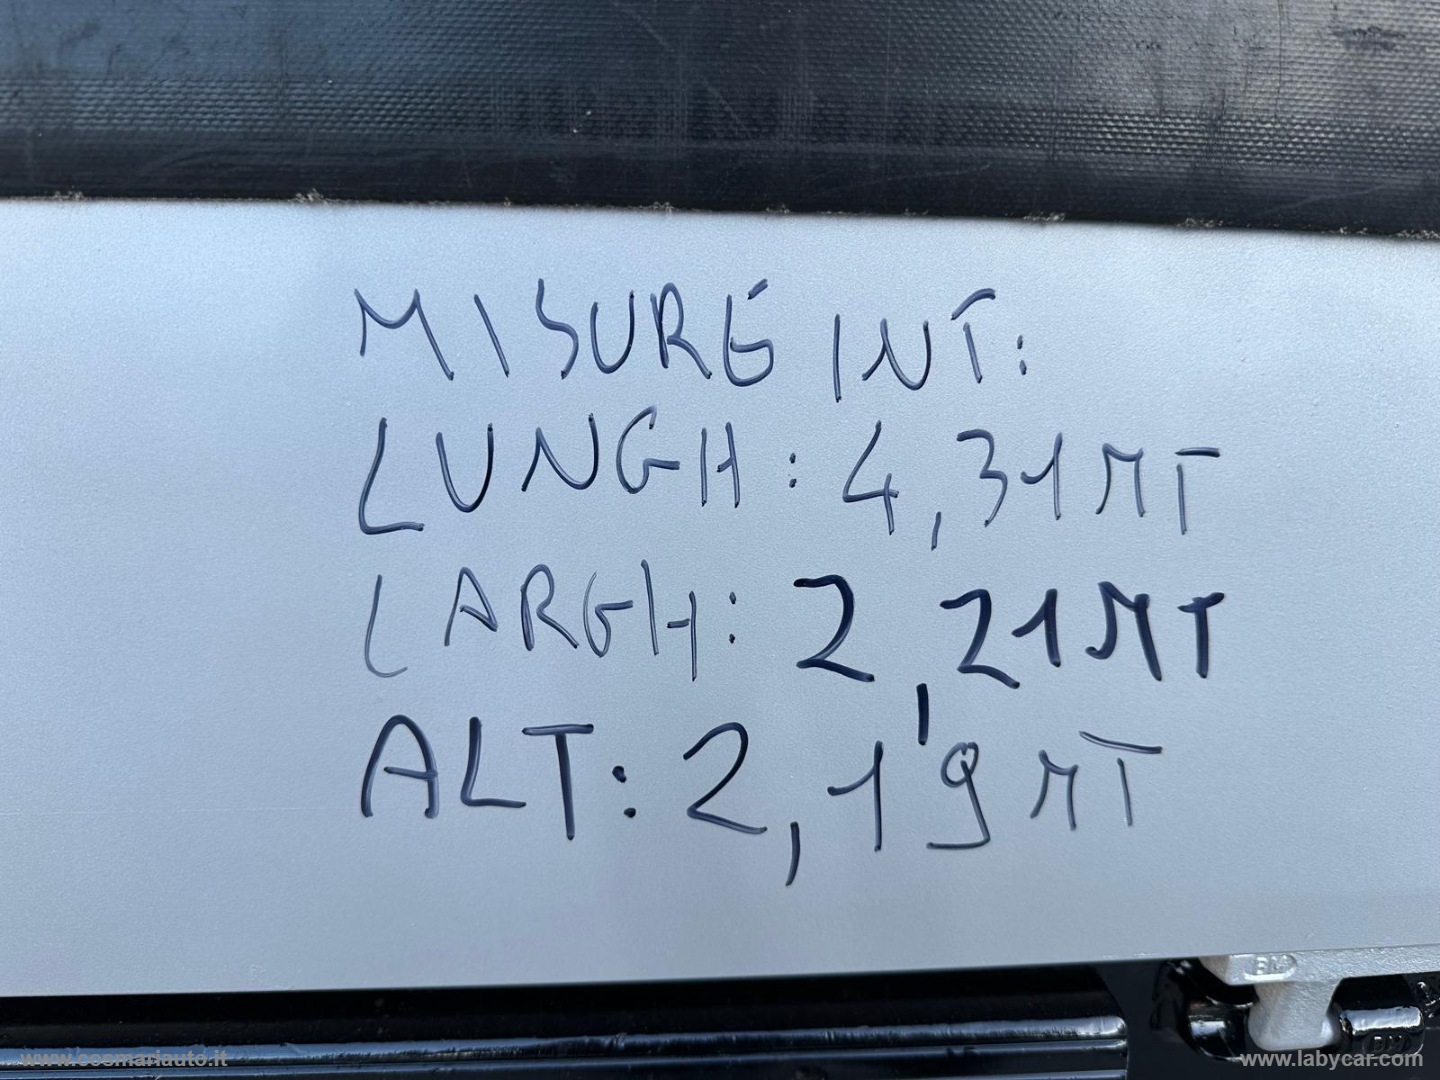 MISURE INT:
LUNGH: 4,31 MT
LARGH: 2,21 MT
ALT: 2,19 MT
BM
BM
www.cosmariauto.it
www.labycar.com